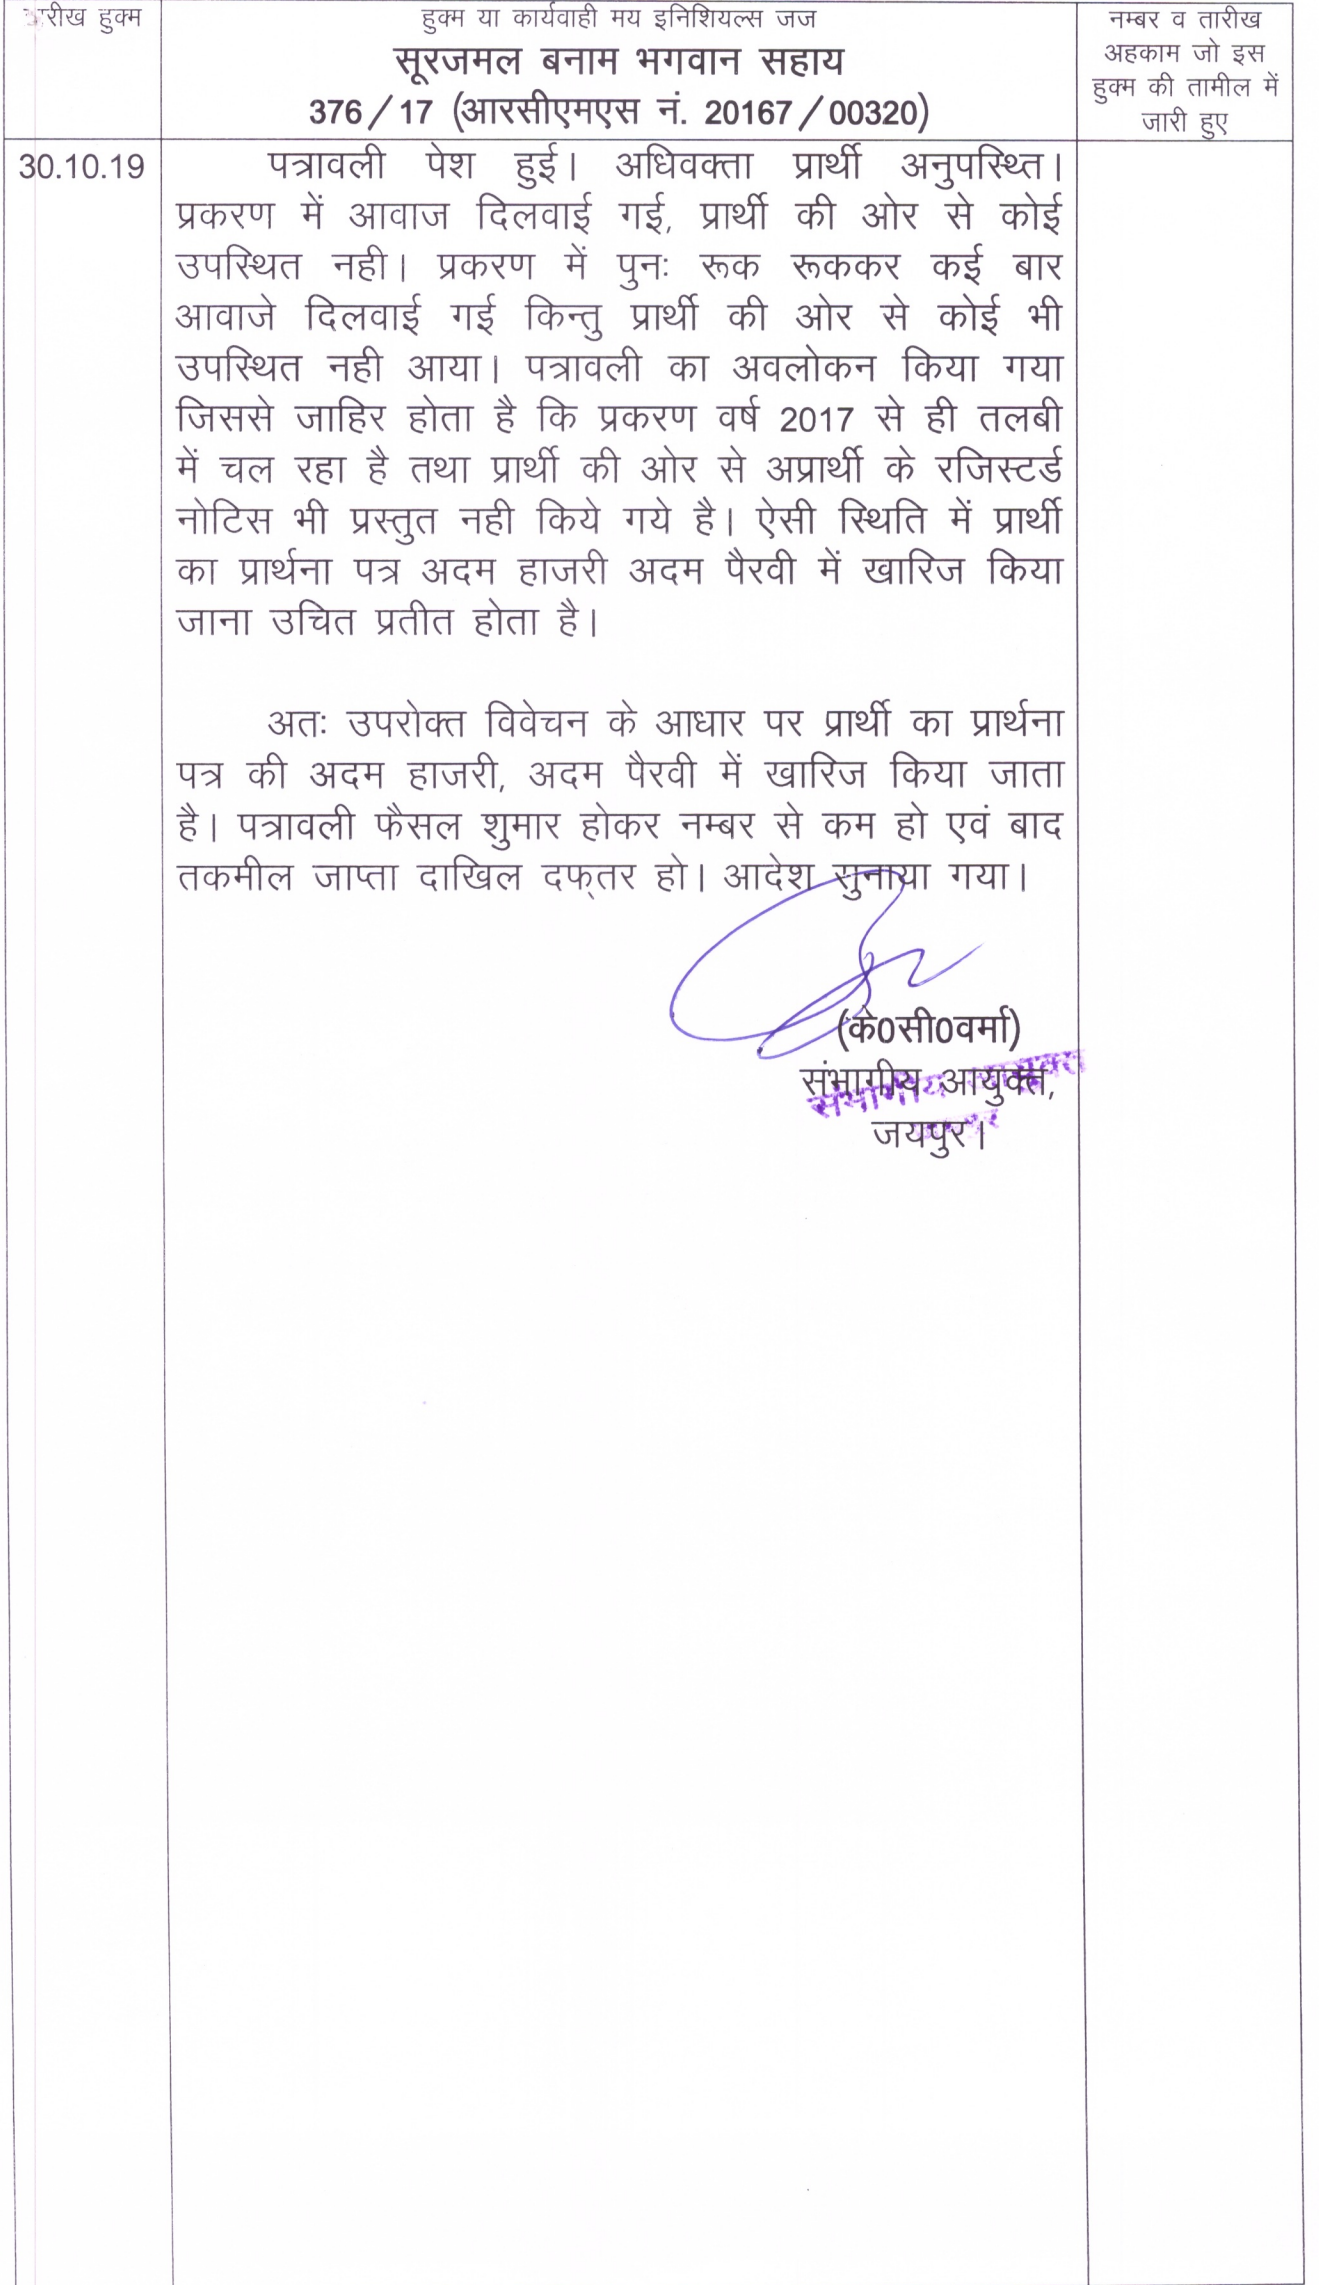 तारीख हुक्म
हुक्म या कार्यवाही मय इनिशियल्स जज
सूरजमल बनाम भगवान सहाय
376/17 (आरसीएमएस नं. 20167/00320)
नम्बर व तारीख
अहकाम जो इस
हुक्म की तामील में
जारी हुए
30.10.19
पत्रावली पेश हुई। अधिवक्ता प्रार्थी अनुपस्थित।
प्रकरण में आवाज दिलवाई गई, प्रार्थी की ओर से कोई
उपस्थित नही। प्रकरण में पुनः रूक रूककर कई बार
आवाजे दिलवाई गई किन्तु प्रार्थी की ओर से कोई भी
उपस्थित नही आया। पत्रावली का अवलोकन किया गया
जिससे जाहिर होता है कि प्रकरण वर्ष 2017 से ही तलबी
में चल रहा है तथा प्रार्थी की ओर से अप्रार्थी के रजिस्टर्ड
नोटिस भी प्रस्तुत नही किये गये है। ऐसी स्थिति में प्रार्थी
का प्रार्थना पत्र अदम हाजरी अदम पैरवी में खारिज किया
जाना उचित प्रतीत होता है।
अतः उपरोक्त विवेचन के आधार पर प्रार्थी का प्रार्थना
पत्र की अदम हाजरी, अदम पैरवी में खारिज किया जाता
है। पत्रावली फैसल शुमार होकर नम्बर से कम हो एवं बाद
तकमील जाप्ता दाखिल दफ्तर हो। आदेश सुनाया गया।
(के0सी0वर्मा)
संभागीय आयुक्त,
संभागीय आयुक्त
जयपुर।